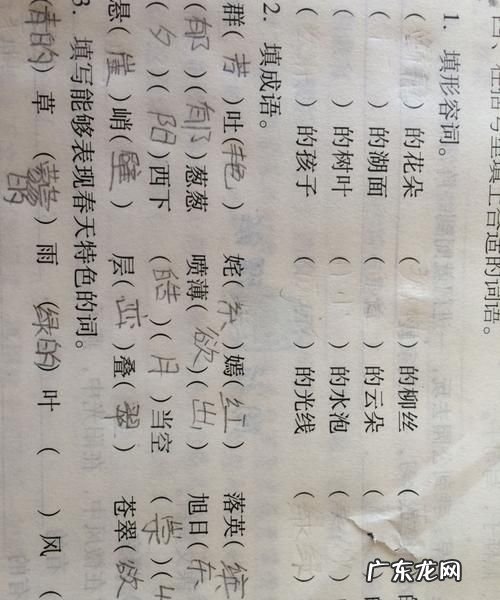 四、在括号里填上合适的词语。
1. 填形容词。
( )的花朵 ( )的柳丝 (
( )的湖面 ( )的云朵 (
( )的树叶 ( )的水泡 (
( )的孩子 ( )的光线 (
2. 填成语。
群(芳)吐(艳) 姹(紫)嫣(红) 落英(缤
(郁)(郁)葱葱 喷薄(欲)(出) 旭日(东
(夕)(阳)西下 (皓)(月)当空 (崇)(
悬(崖)峭(壁) 层(峦)叠(翠) 苍翠(欲
3. 填写能够表现春天特色的词。
(青的)草 ( 的)雨 (绿的)叶 ( )风 (
广东龙网